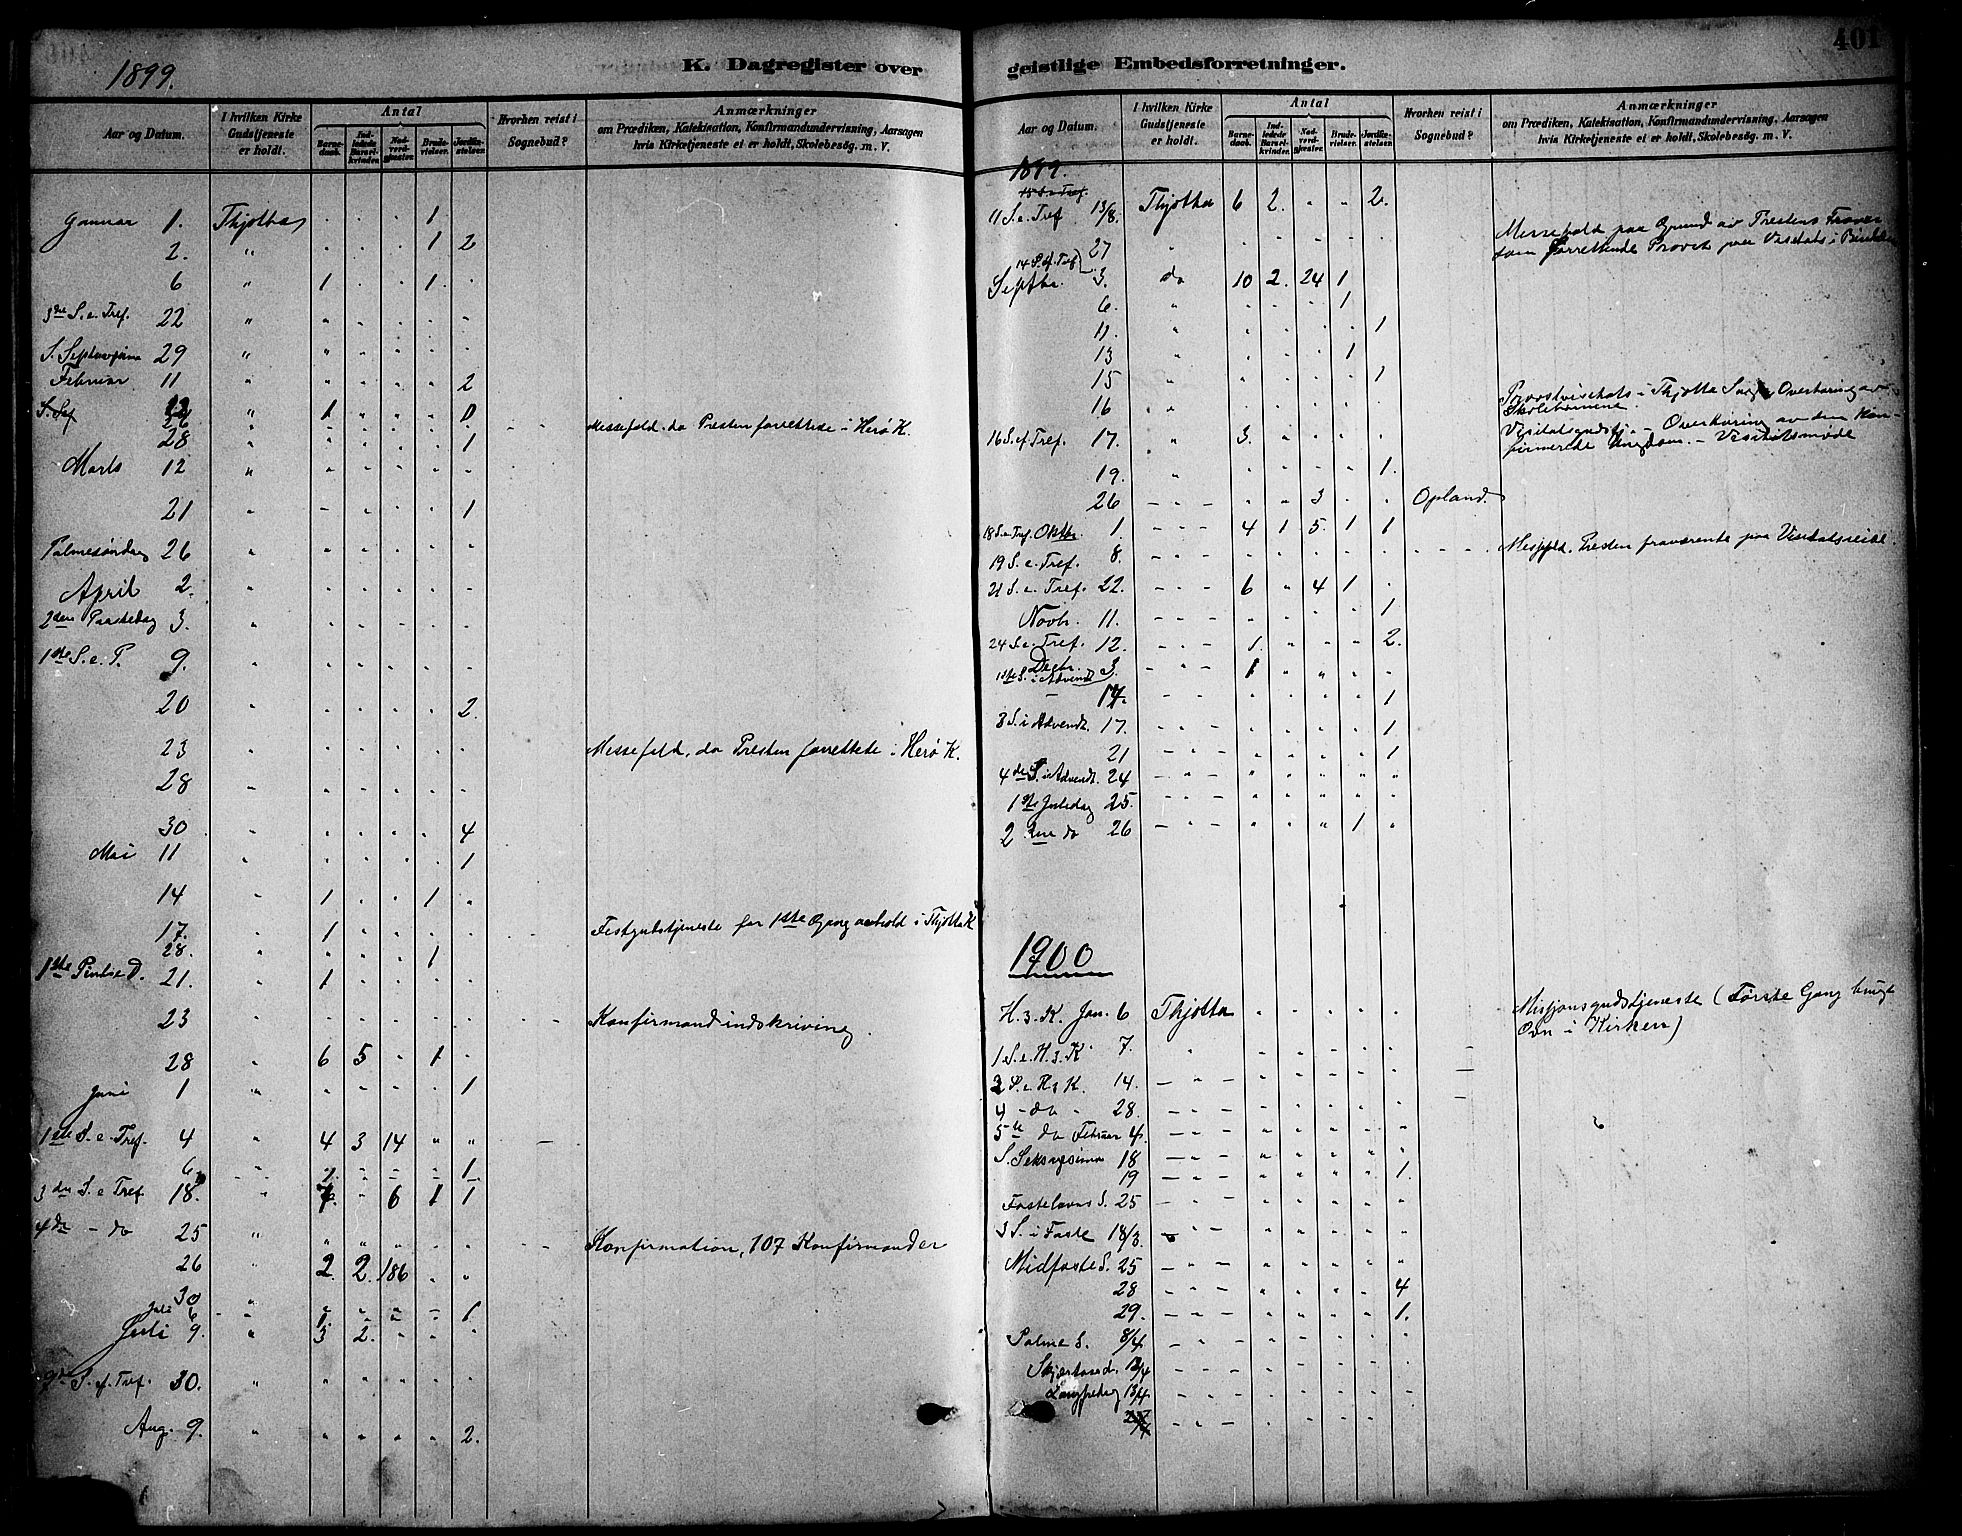 401
1899.
K. Dagregister over
Aar og Datum.
I hvilken Kirke Gudstjeneste er holdt.
Antal
Barnedaab.
Indledede Barselkvinder.
Nadverdgjester.
Brudevielser.
Jordfæstelser.
Hvorhen reist i Sognebud?
Anmærkninger
om Prædiken, Katekisation, Konfirmandundervisning, Aarsagen
hvis Kirketjeneste ei er holdt, Skolebesög. m. V.
Januar 1. Thjotta . . . 1
2. " . . . 1 2
6 " 1 . . 1 .
3die S. e. Tref. 22 "
S. Septuagesima 29 "
Februar 11 " 2
S. Sex 26 " 1 Messefald, da Presten forrettede i Herø K.
28 " 1
Marts 12 "
21 " 1
Palmesøndag 26 "
April 2. "
2den Paaskedag 3. "
1ste S. e. P. 9. "
20 " 2.
23 " Messefald, da Presten forrettede i Herø K.
28 "
30 " 4
Mai 11 " 1
14 " 1 . . 1 "
17. " 1 Festgudstjeneste for 1ste Gang avhold i Thjotta K
28. " 1
1ste Pintse D. 21. " 1
23 " Konfirmandindskriving.
28 " 6 5 . 1 .
Juni 1 " 1
1ste S. e. Tref. 4 " 4 3 14 " "
6 1 1
3die S. e Tref 18. " 7. " 6 1 1
4de - do 25 "
26 " 2 2. 186 . " Konfirmation, 107 Konfirmander
30 "
Juli 6 1 1
Juli 9. " 3 2. . .
9de S. e. Tref. 30. "
Aug. 9. " 2.
geistlige Embedsforretninger.
Aar og Datum.
I hvilken Kirke Gudstjeneste er holdt.
Antal
Barnedaab.
Indledede Barselkvinder.
Nadverdgjester.
Brudevielser.
Jordfæstelser.
Hvorhen reist i Sognebud?
Anmærkninger
om Prædiken, Katekisation, Konfirmandundervisning, Aarsagen
hvis Kirketjeneste ei er holdt, Skolebesög. m. V.
1899.
11 S. e. Tref 13/8. Thjotta 6 2. " " 2.
27 Messefald paa Grund av Prestens Fravær
som forrettende Provst paa Visitats i
14 S. e. Tref
Septbr. 3. do 10 2. 24 1
6. " 1
11. " 1
13 " 1
15 " 1
16 " Provstvisitats i Thjotta Sogn, Overhøring av Skolebørnene.
16 S. e. Tref. 17. " 3. Visitatsgudstj. - Overhøring av den Kon-
firmerede Ungdom. - Visitatsmøde
19. " 1.
26 - - - " " 3 Opland.
18 S. e. Tref. Oktbr. 1. - - - 4 1 5. 1 1
19 S. e. Tref. 8. - - - Messfld. Presten fraværende paa Visitatsreise.
21 S. e. Tref. 22. - - - 6 " 4 1
Novb. 11. - - - 1
24 S. e. Tref. 12. - - - 1. 2.
Decbr.
1ste S. i Advendt 3. - " - 1
14. 1
3 S. i Advendt. 17. 1
21 1
4de S. i Advendt. 24
1ste Juledag 25.
2 den do 26 1
1900
H. 3. K. Jan. 6 Thjotta Misjonsgudstjeneste (Første Gang brugt
Ovn i Kirken)
1 S. e. H. 3. K. 7.
2 S. e H 3 K. 14.
4 - do - 28.
5te do Februar 4.
S. Seksagesima 18
19 1.
Fastelavns S. 25
3 S. i Faste 18/3.
Midfaste S. 25
28 4
29. 1.
Palme S. 8/4
Skjærtorsd. 12/4
Langfredag 13/4